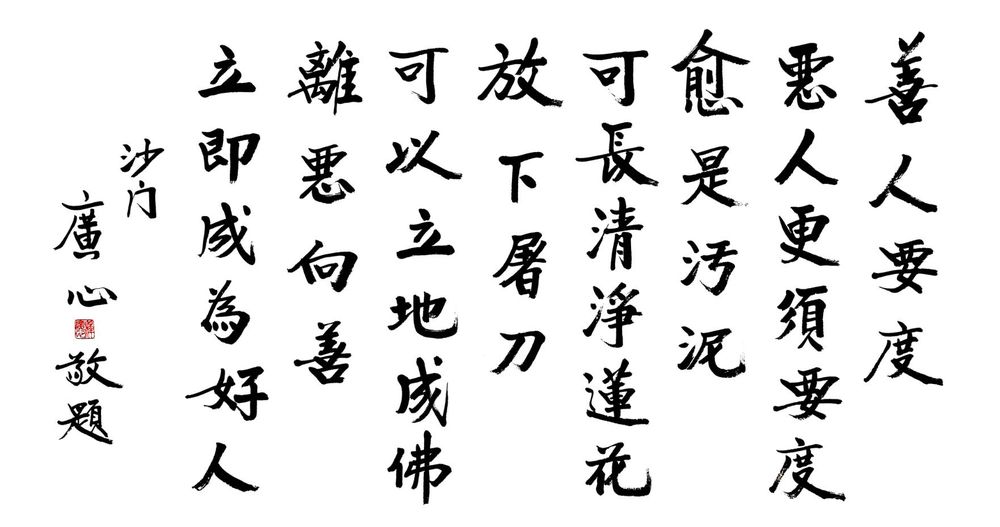 善人要度
悪人更須要度
愈是汚泥
可長清淨蓮花
放下屠刀
可以立地成佛
離悪向善
立即成為好人
沙门
廣心
敬題